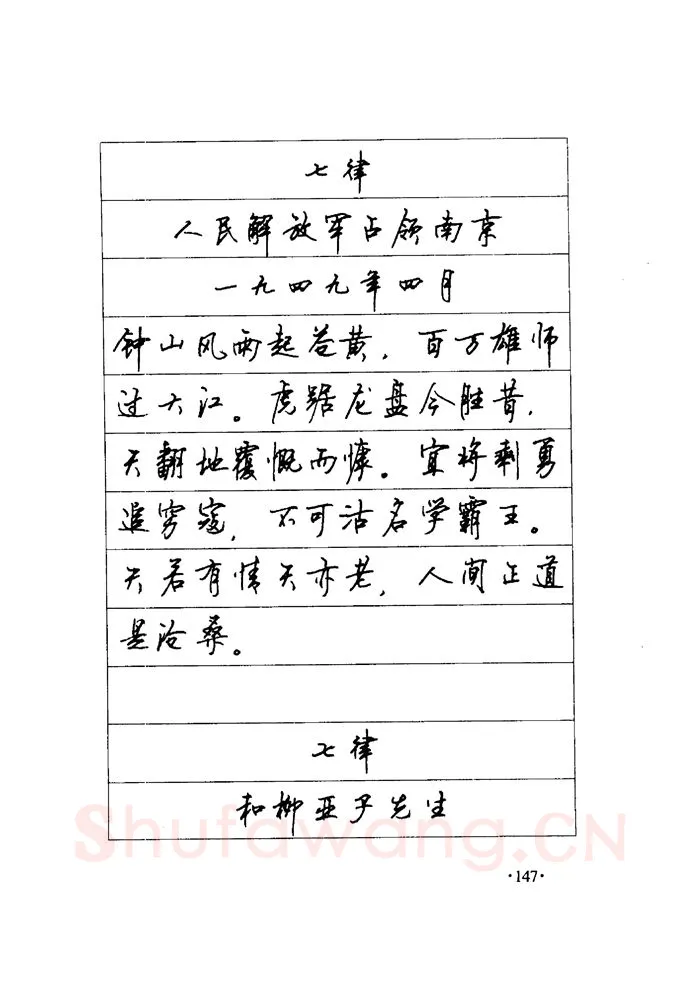 七律
人民解放军占领南京
一九四九年四月
钟山风雨起苍黄，百万雄师
过大江。虎踞龙盘今胜昔，
天翻地覆慨而慷。宜将剩勇
追穷寇，不可沽名学霸王。
天若有情天亦老，人间正道
是沧桑。
七律
和柳亚子先生
Shufawang.CN
·147·